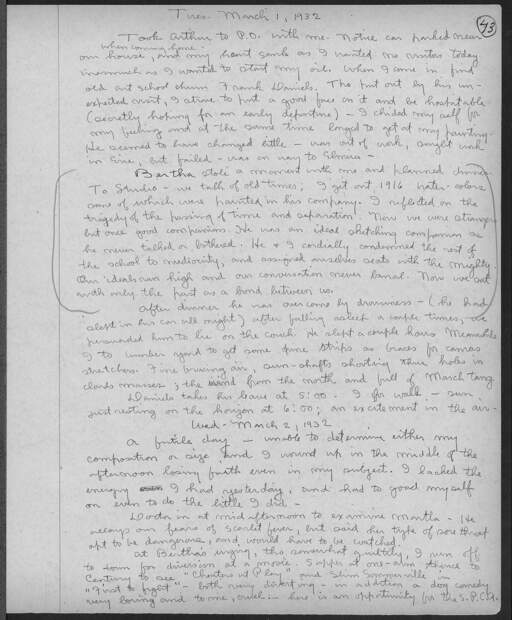 43
Tues. March 1, 1932
Took Arthur to P.O. with me. Notice car parked near
when coming home
our house, and my heart sank as I wanted no visitor today
inasmuch as I wanted to start my oil. When I come in find
old art school chum Frank Daniels. Tho put out by his un-
expected visit, I strive to put a good face on it and be hospitable
(secretly hoping for an early departure) – I chided myself for
my feeling and at the same time longed to get at my painting.
He seemed to have changed little – was out of work, sought work
in Erie, but failed – was on way to Elmira –
Bertha stole a moment with me and planned dinner.
To Studio – we talk of old times; I get out 1916 water-colors
some of which were painted in his company. I reflected on the
tragedy of the passing of time and separation. Now we were strangers
but once good companions. He was an ideal sketching companion as
he never talked or bothered. He & I cordially condemned the rest of
the school to mediocrity, and assigned ourselves seats with the mighty.
Our ideals ran high and our conversation never banal. Now we
with only the past as a bond between us.
After dinner he was overcome by drowsiness – (he had
slept in his car all night) after falling asleep a couple times, we
persuaded him to lie on the couch. He slept a couple hours. Meanwhile
I to lumber yard to get some pine strips as braces for canvas
stretchers. Fine bruising air, sun-shafts shooting thru holes in
clouds masses; the wind from the north and full of March tang
Daniels takes his leave at 5:00. I for walk – sun
just resting on the horizon at 6:00; an excitement in the air –
Wed – March 2, 1932
A futile day – unable to determine either my
composition or size and I wound up in the middle of the
afternoon losing faith even in my subject. I lacked the
energy I had yesterday, and had to goad myself
on even to do the little I did –
Doctor in at mid afternoon to examine Martha – He
allays our fears of scarlet fever, but said her type of sore throat
apt to be dangerous, and would have to be watched.
At Bertha's urging, tho somewhat guiltily, I run off
to town for diversion at a movie. Supper at one-arm thence to
Century to see "Cheaters at Play" and Slim Summerville in
"First to Fight" – both very diverting – in addition a dog comedy
very boring and to me, cruel – here is an opportunity for the S.P.C.A.